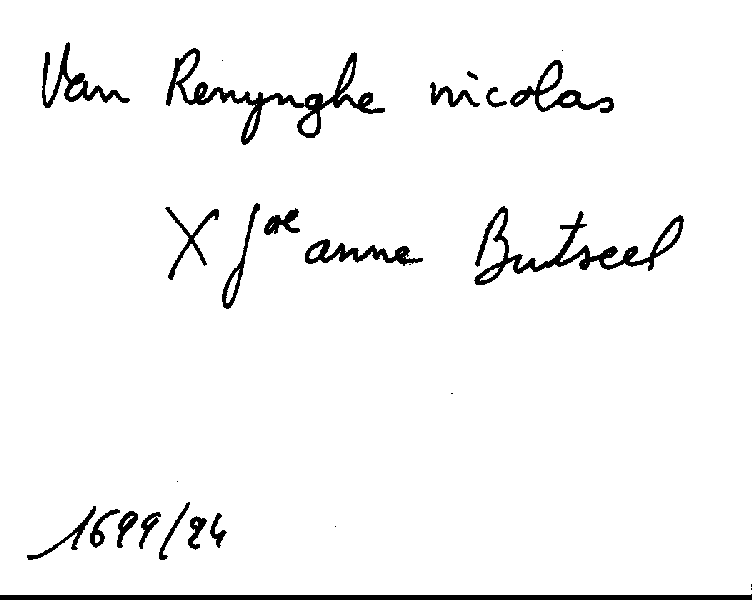 Van Renynghe nicolas
X Joe anne Butseel
1699/24